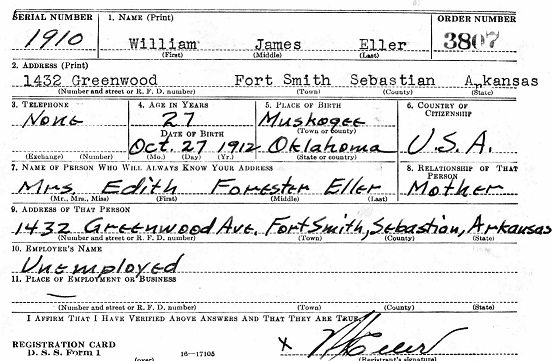 SERIAL NUMBER 1. NAME (Print) ORDER NUMBER
1910 William James Eller 3807
(First) (Middle) (Last)
2. ADDRESS (Print)
1432 Greenwood Fort Smith Sebastian Arkansas
(Number and street or R. F. D. number) (Town) (County) (State)
3. TELEPHONE 4. AGE IN YEARS 5. PLACE OF BIRTH 6. COUNTRY OF CITIZENSHIP
None 27 Muskogee
DATE OF BIRTH (Town or county)
Oct. 27 1912 Oklahoma U.S.A.
(Exchange) (Number) (Mo.) (Day) (Yr.) (State or country)
7. NAME OF PERSON WHO WILL ALWAYS KNOW YOUR ADDRESS 8. RELATIONSHIP OF THAT PERSON
Mrs. Edith Forester Eller Mother
(Mr., Mrs., Miss) (First) (Middle) (Last)
9. ADDRESS OF THAT PERSON
1432 Greenwood Ave. Fort Smith, Sebastion, Arkansas
(Number and street or R. F. D. number) (Town) (County) (State)
10. EMPLOYER'S NAME
Unemployed
11. PLACE OF EMPLOYMENT OR BUSINESS
—
(Number and street or R. F. D. number) (Town) (County) (State)
I AFFIRM THAT I HAVE VERIFIED ABOVE ANSWERS AND THAT THEY ARE TRUE.
REGISTRATION CARD X Eller
D. S. S. Form 1 (over) 16—17105 (Registrant's signature)